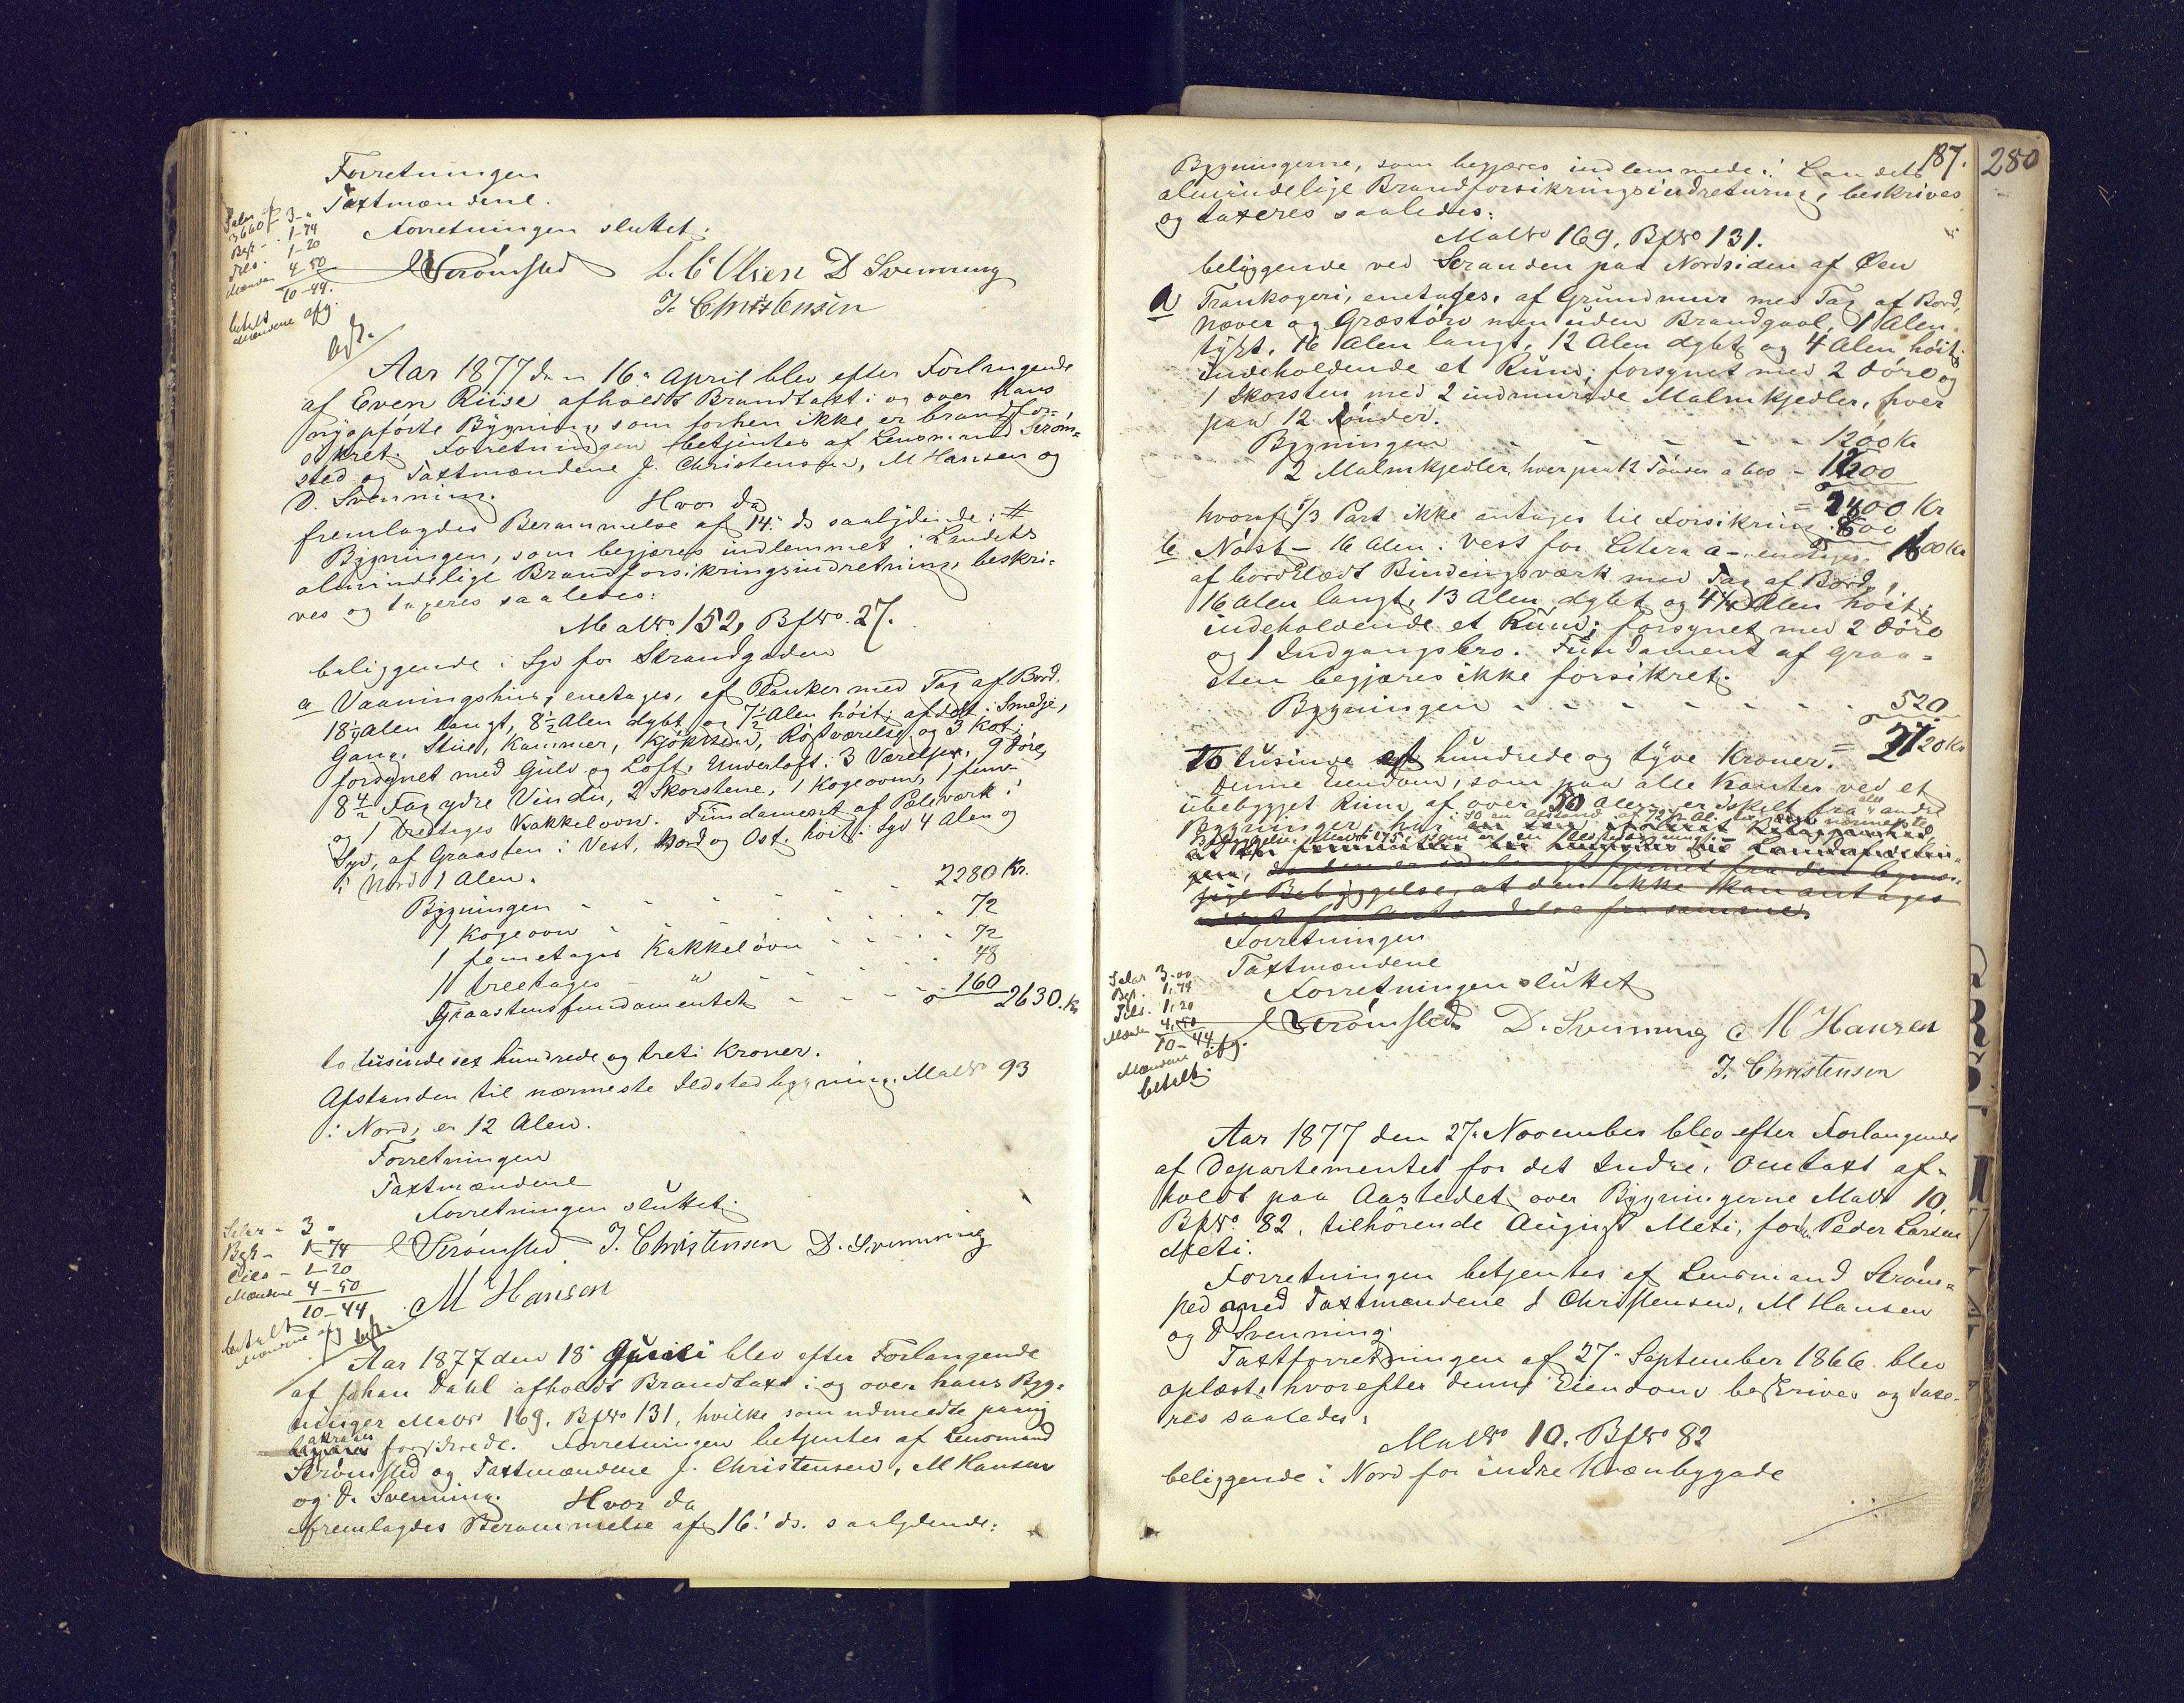 Forretningen
Taxtmændene.
Forretningen sluttet.
Salar af 3-"
3660
Bef - 1-74
Dils. 1-20
Mænden 4-50
10-44.
betalt
Mændene afg.
Strømsted L. C. Olsen D Svenning
J. Christensen
bogf.
Aar 1877 den 16de April blev efter Forlangende
af Even Riise afholdt Brandtaxt i og over hans
nyopførte Bygning, som forhen ikke er brandfor-
sikret. Forretningen betjentes af Lensmand Strøm-
sted og Taxtmændene J. Christensen, M Hansen og
D. Svenning. Hvor da
fremlagdes Berammelse af 14. ds saalydende: #
Bygningen, som begjæres indlemmet i Landets
almindelige Brandforsikringsindretning, beskri-
ves og taxeres saaledes:
Mat No 152, Bf No. 27.
beliggende i Syd for Strandgaden
a Vaaningshus, enetages, af Planker med Tag af Bord.
18¼ Alen langt, 8½ Alen dybt og 7½ Alen høit; afdelt i Smedje,
Gang, Stue, Kammer, Kjøkken, Røstværelse og 3 Kot;
forsynet med Gulv og Loft. Underloft. 3 Værelser, 9 Døre,
8 4/2 Fag ydre Vindu, 2 Skorstene, 1 Kogeovn, 1 fem-
og 1 treetages Kakkelovn. Fundament af Pæleværk i
Syd, af Graasten i Vest, Nord og Ost. høit i Syd 4 Alen og
i Nord 1 Alen.
Bygningen - - - - 2280 Kr.
1 Kogeovn - - - - 72
1 femetages Kakkelovn - - - 72
1 treetages - " - - - 48
Graastensfundamentet - - - 160
2630. Kr
to tusinde sex hundrede og treti Kroner.
Afstanden til nærmeste Ildstedbygning. Mat No 93
i Nord, er 12 Alen.
Forretningen
Taxtmændene
Forretningen sluttet.
Salar - 3 "
Bef - 1-74
Dils - 1-20
Mændene 4-50
10-44
betalt
Mændene afg
Strømsted J. Christensen D. Svenning
M Hansen
bogf.
Aar 1877 den 18de Juni blev efter Forlangende
af Johan Dahl afholdt Brandtaxt i og over hans Byg-
ninger Mat No 169. Bf No 131, hvilke som udmeldte paany
attraaes forsikrede. Forretningen betjentes af Lensmand
Strømsted og Taxtmændene J. Christensen, M Hansen
og D. Svenning. Hvor da
fremlagdes Berammelse af 16. ds. saalydende:
187.
280
Bygningerne, som begjæres indlemmede i Landets
almindelige Brandforsikringsindretning, beskrives
og taxeres saaledes:
Mat No 169, Bf No 131.
beliggende ved Stranden paa Nordsiden af Øen
a Trankogeri, enetages, af Grundmur med Tag af Bord,
Næver og Græstørv men uden Brandgavl. 1 Alen
tykt, 16 Alen langt, 12 Alen dybt og 4 Alen høit;
indeholdende et Rum; forsynet med 2 Døre og
1 Skorsten med 2 indmurede Malmkjedler, hver
paa 12 Tønder.
Bygningen - - - - - 1200 Kr
2 Malmkjedler, hver paa 12 Tønder a 600 - 1200
= 2400 Kr
hvoraf 1/3 Part ikke antages til Forsikring. 800
1600 Kr
b Nøst - 16 Alen i Vest for Litera a - enetages.
af bordklædt Bindingsværk med Tag af Bord,
16 Alen langt, 13 Alen dybt og 4¼ Alen høit;
indeholdende et Rum; forsynet med 2 Døre
og 1 Indgangsbro. Fundament af Graa-
sten begjæres ikke forsikret.
Bygningen - - - - - - 520
= 2120 Kr
To tusinde et hundrede og tyve Kroner.
Denne Eiendom, som paa alle Kanter ved et
ubebygget Rum af over 50 Alen er adskilt fra alle andre
Bygninger, har i SO en Afstand af 72½ Al. til nærmeste
Bebyggelse, Mat No 175, som er en Ildstedbygning.
gen, da den er saaledes fjernet fra den bymæs-
sige Bebyggelse, at den ikke kan antages
fra samme.
Forretningen
Taxtmændene
Forretningen sluttet
Salar 3-00
Bef. 1,74
Dils. 1,20
Mænden 4,50
10-44.
Mændene afg.
betalt.
Strømsted D. Svenning M Hansen
J. Christensen
Aar 1877 den 27de November blev efter Forlangende
af Departementet for det Indre, Omtaxt af-
holdt paa Aastedet over Bygningerne Mat No 10,
Bf No. 82, tilhørende August Meti, forh. Peder Larsen
Meti.
Forretningen betjentes af Lensmand Strøm-
sted med Taxtmændene J Christensen, M Hansen
og D Svenning.
Taxtforretningen af 27de September 1866 blev
oplæst, hvorefter denne Eiendom beskrives og taxe-
res saaledes:
Mat No 10. Bf No 82
beliggende i Nord for indre Kvænbygade